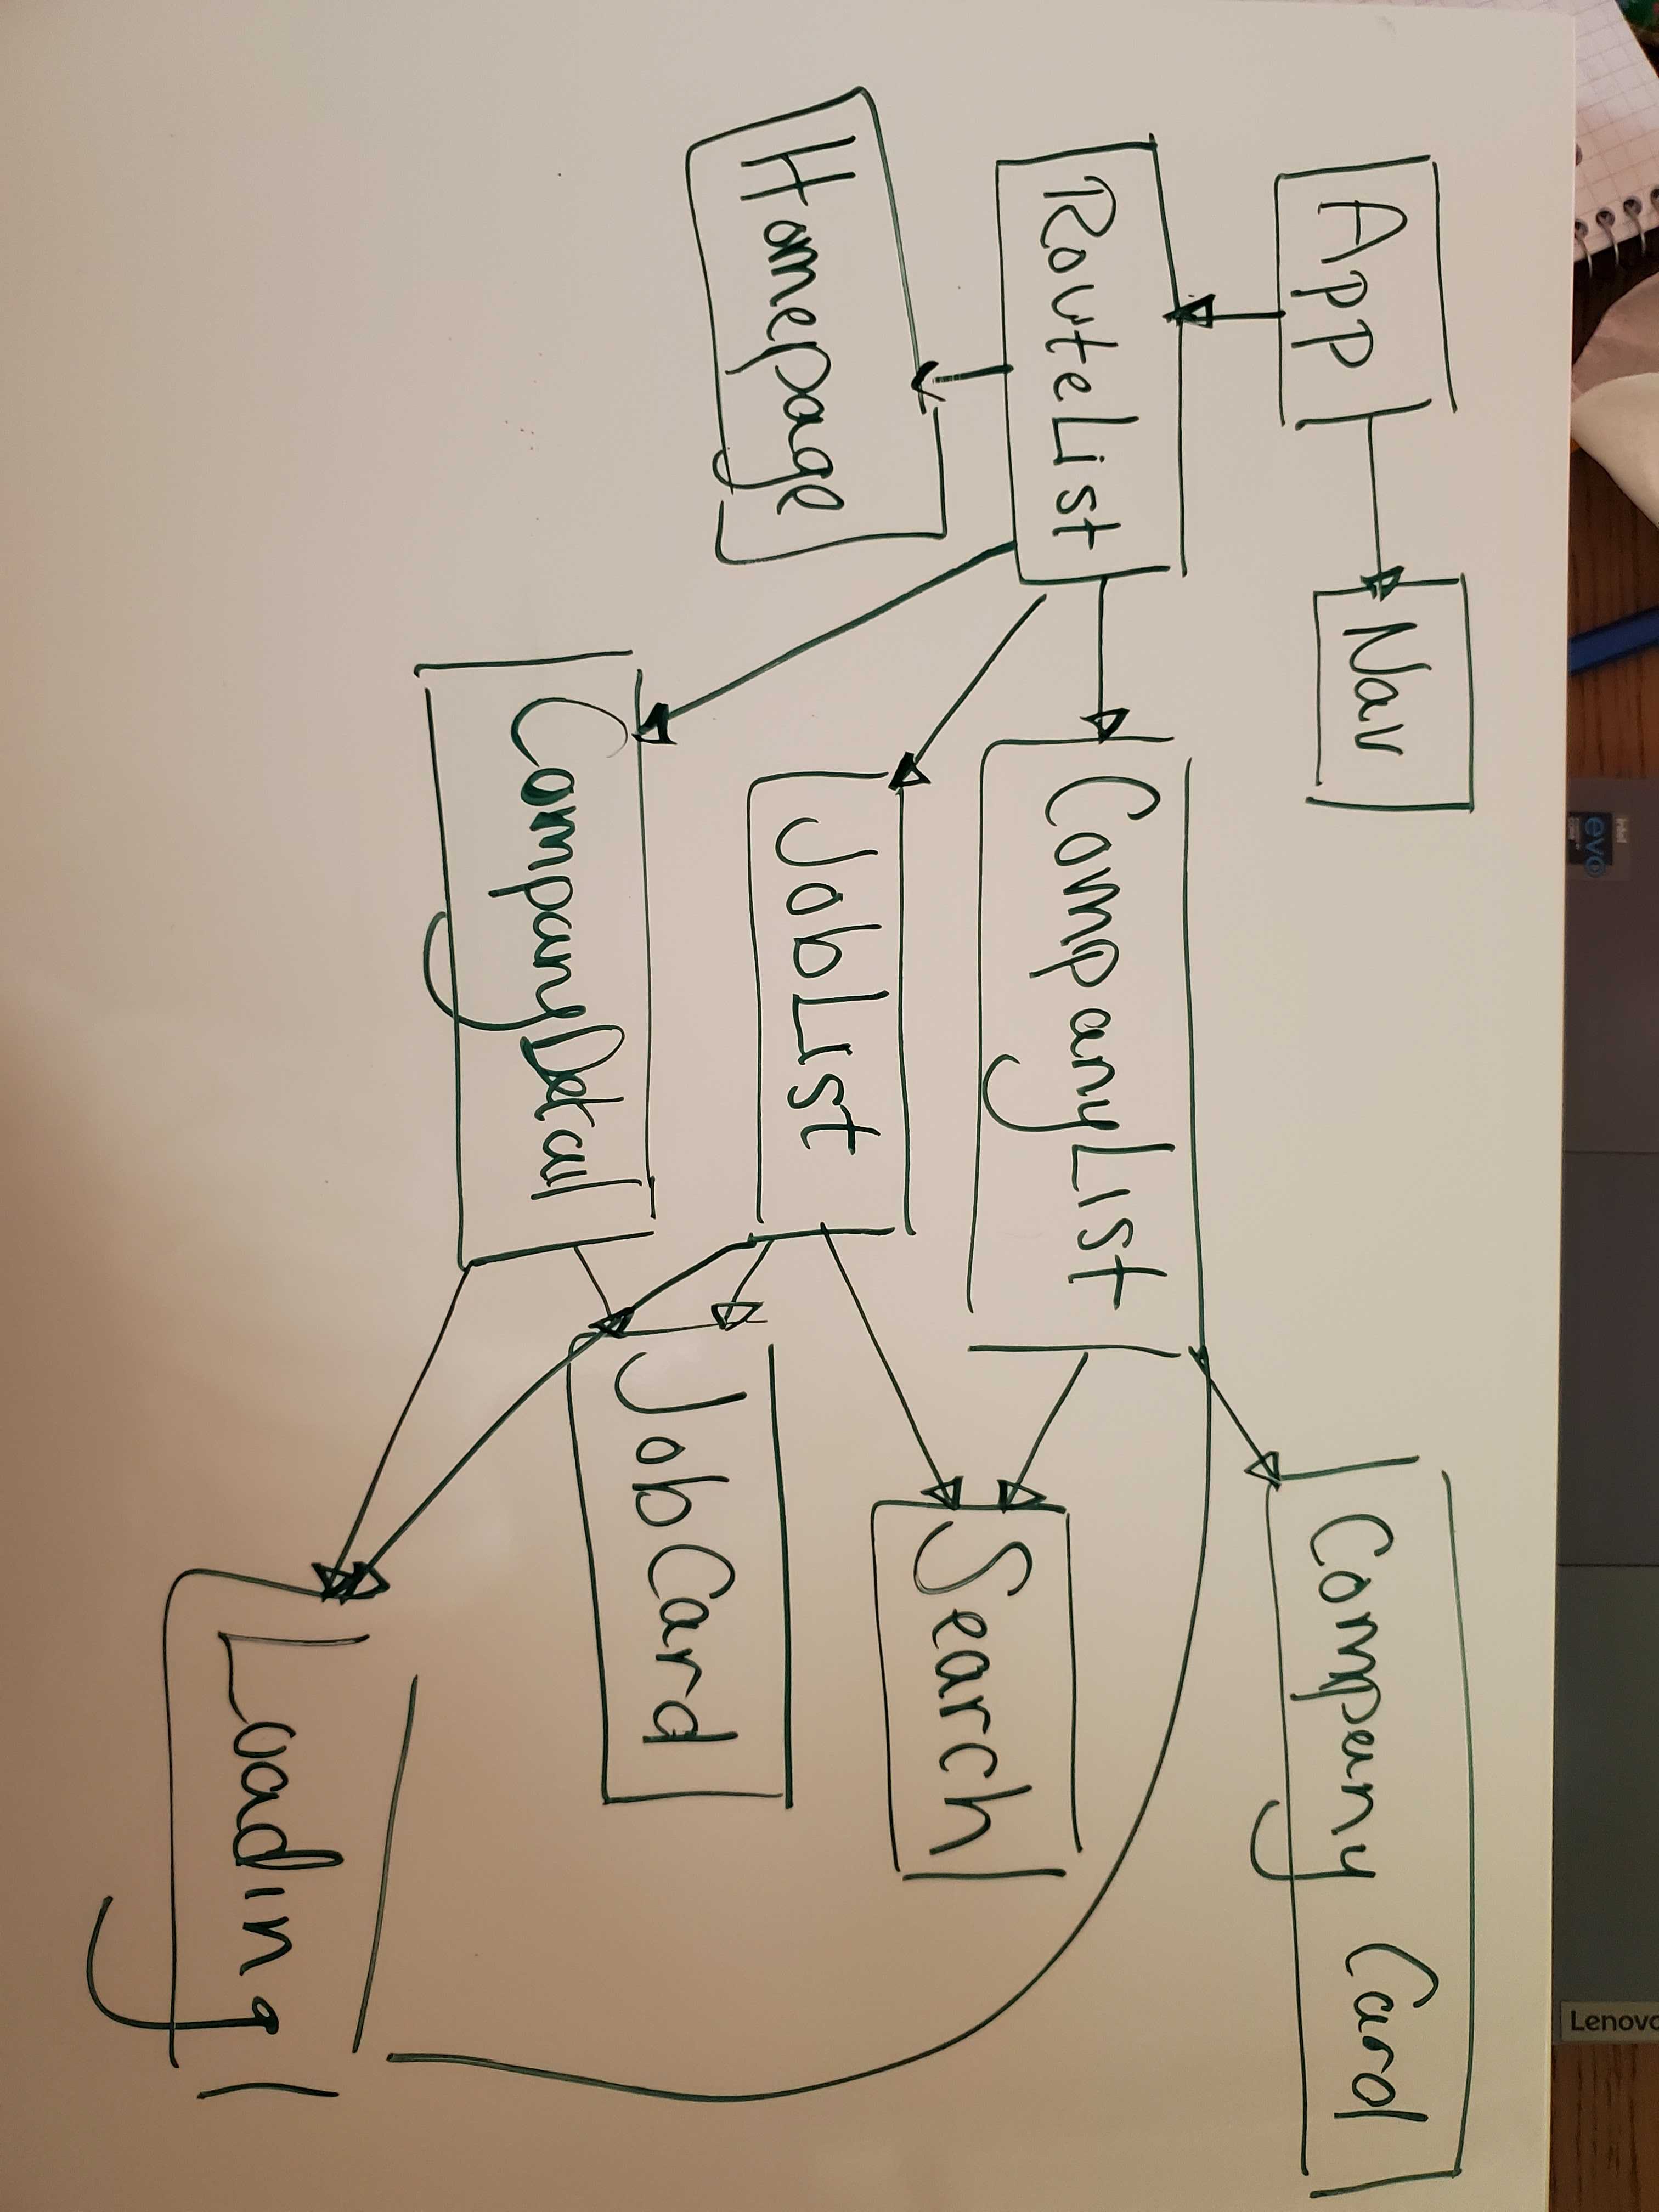 intel
evo
Lenovo
App
Nav
Company Card
RouteList
CompanyList
Search
Homepage
JobList
JobCard
CompanyDetail
Loading